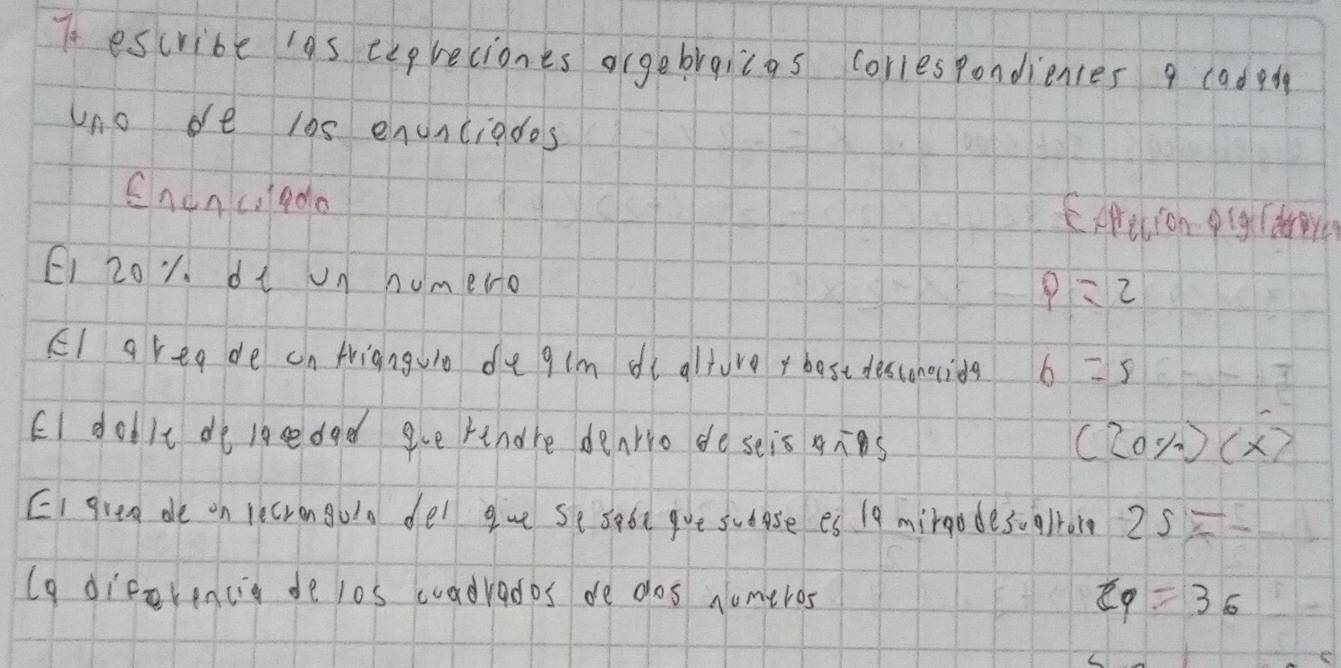 7. escribe las expreciones argebraicas correspondientes a cada
uno de los enunciados
Enunciado
Exprecion
El 20% de un numero
P = 2
El area de un triangulo de 9cm de altura y base desconocida
6 = 5
El doble de la edad que tendre dentro de seis años
(20%) (x)
El area de un rectangulo del que se sabe que su base es la mitad de su altura
25 =
La diferencia de los cuadrados de dos numeros
= 36